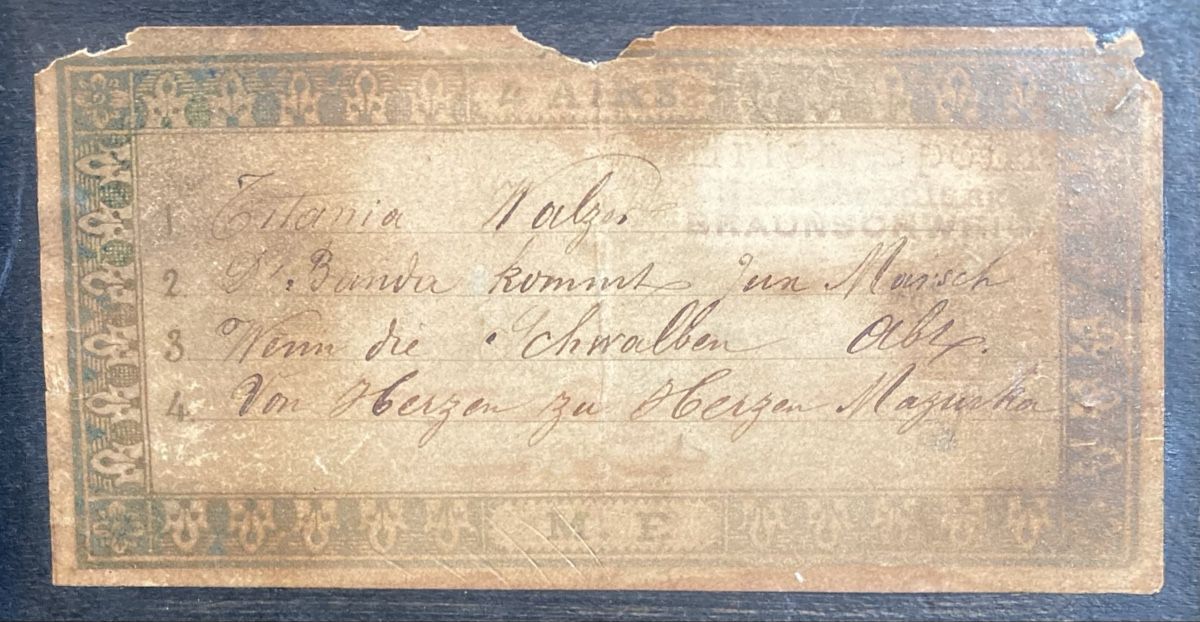 4 AIRS
BRAUNSCHWEIG
1. Titania Walzer
2. D' Banda kommt Jux Marsch
3 Wenn die Schwalben Abt.
4. Von Herzen zu Herzen Mazurka
M. F.